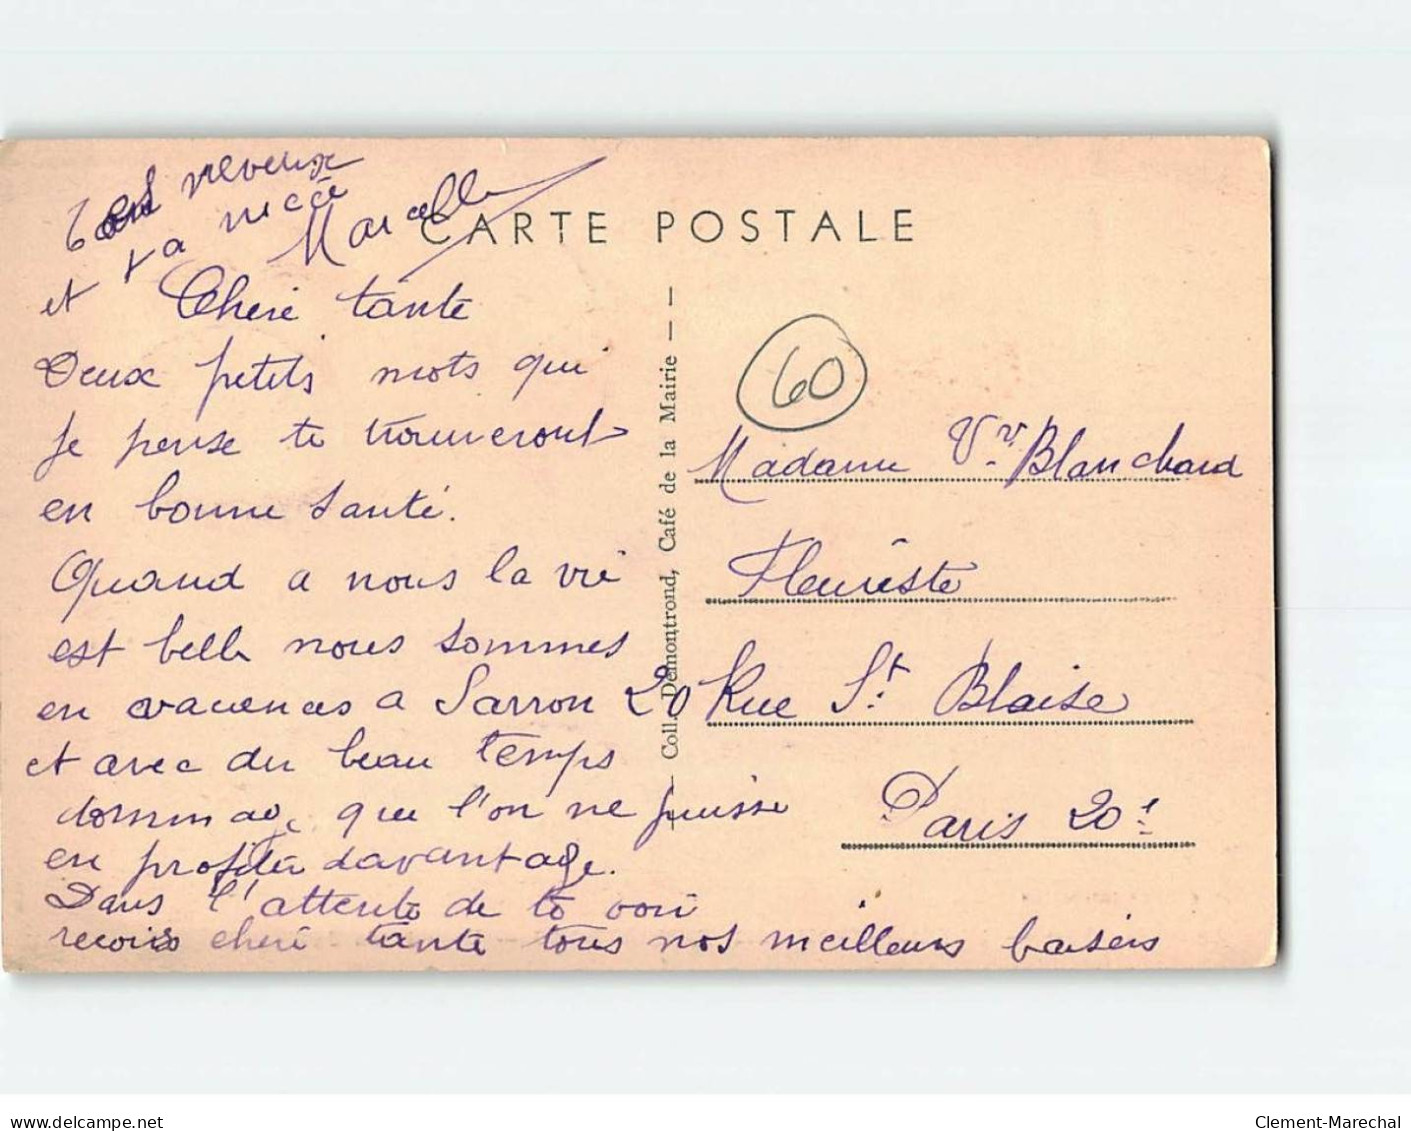 neveux
et ta niece
Marcelle
CARTE POSTALE
Cheri tante
Deux petits mots qui
je pense te trouveront
en bonne santé.
Quand a nous la vie
est belle nous sommes
en vacances a Sarron
et avec du beau temps
dommage que l'on ne puisse
en profiter davantage.
Dans l'attente de te voir
recois cheri tante tous nos meilleurs baisers
Coll. Démontrond, Café de la Mairie
60
Madame Vve Blanchard
Fleuriste
20 Rue St. Blaise
Paris 20e
delcampe.net
Clement-Marechal